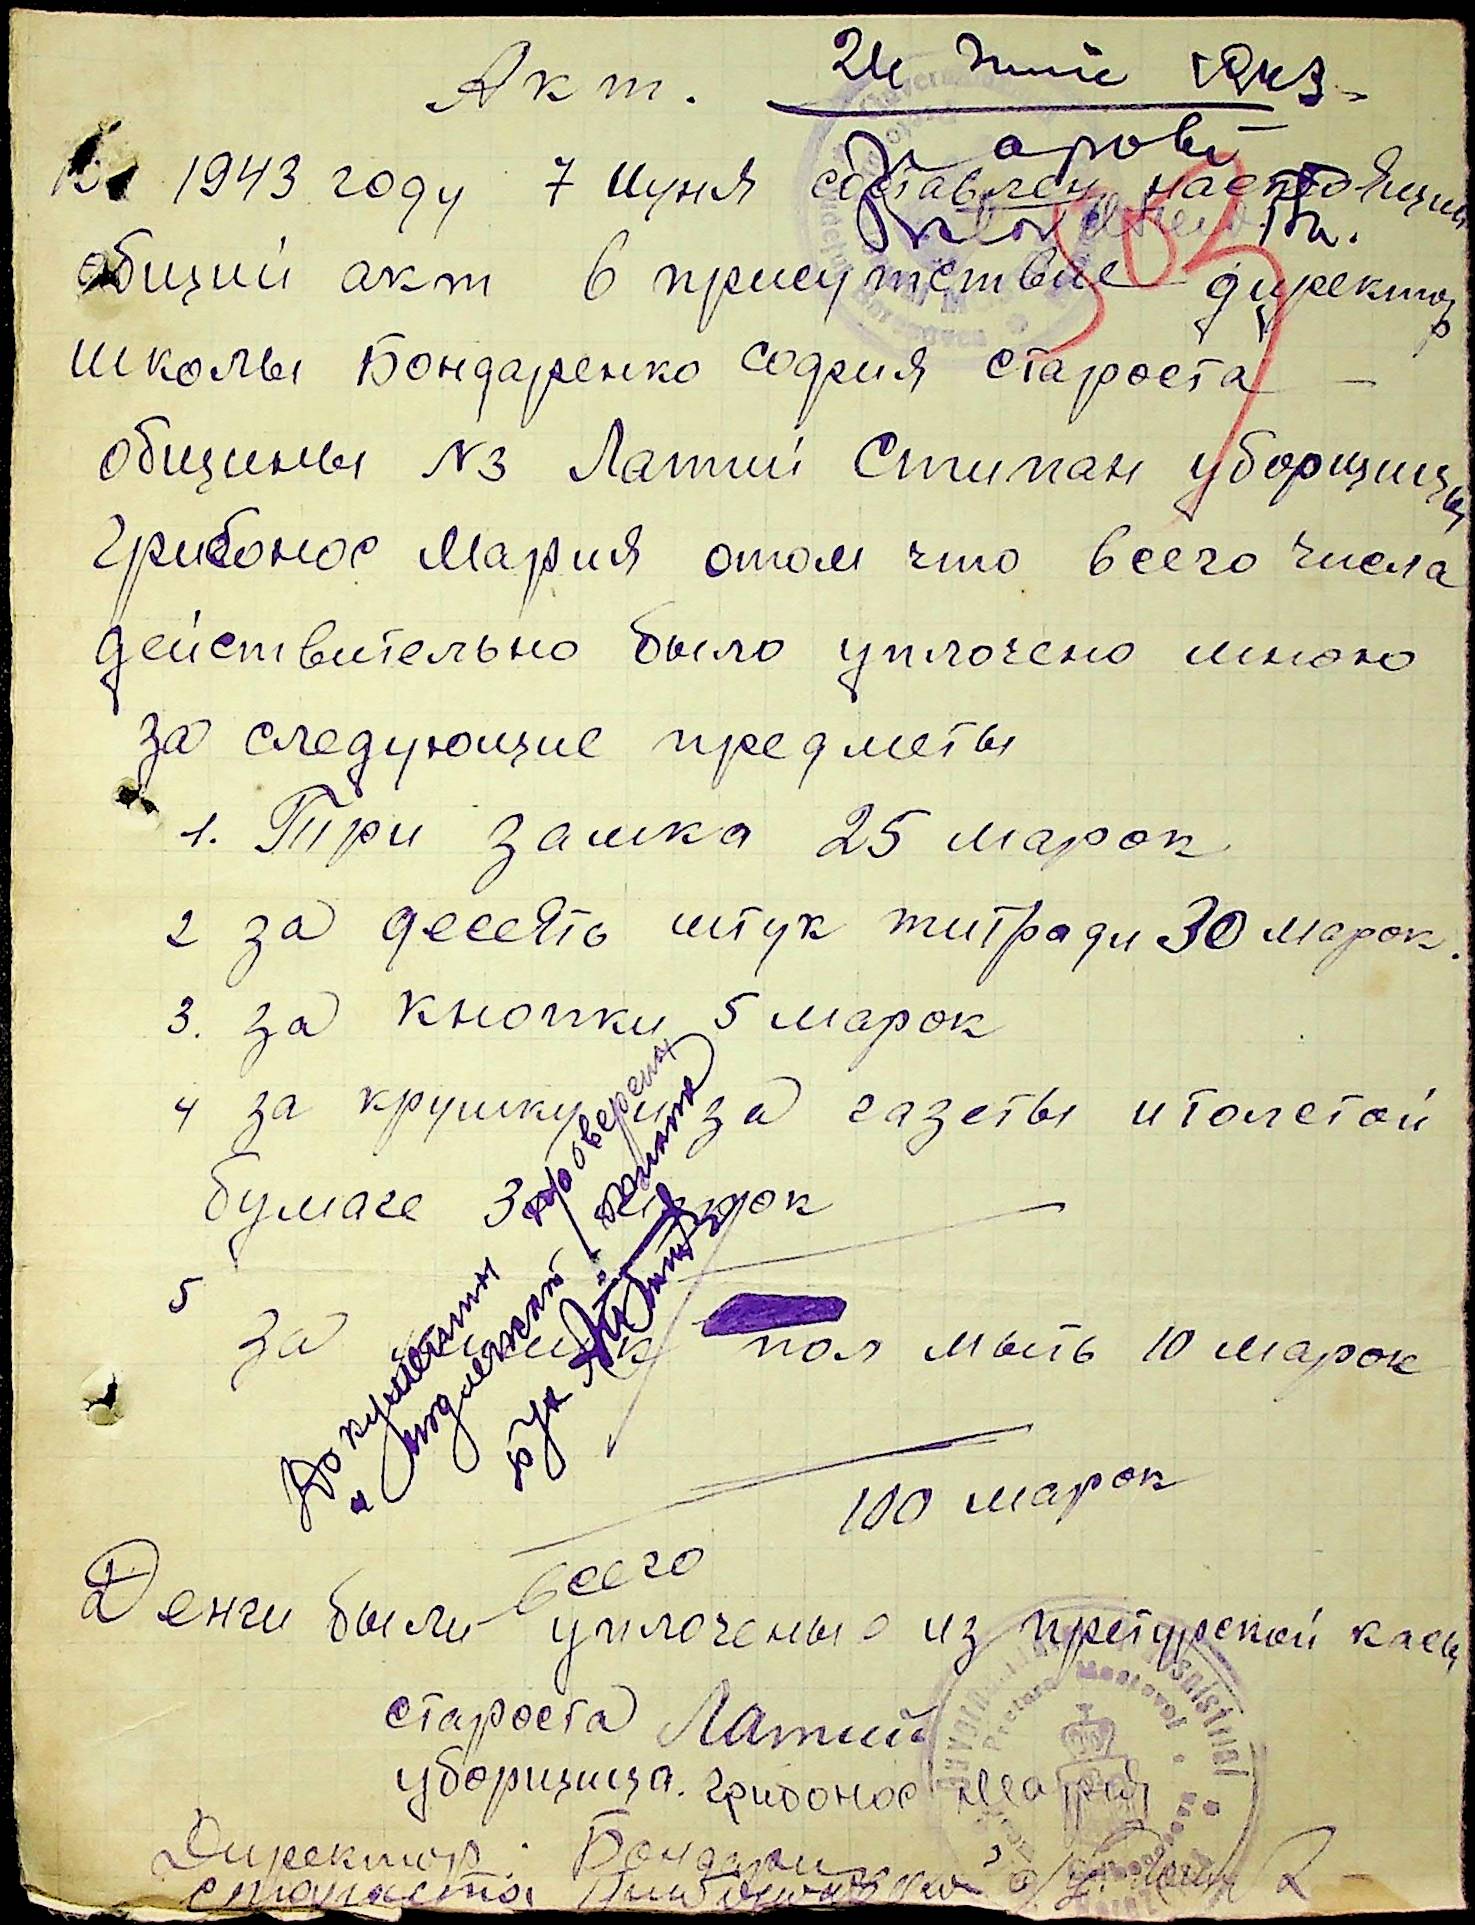 Акт.
1943 году 7 июня составлен настоящий
общий акт в присутствие директор
школы Бондаренко София староста
общины №3 Латий Стипан уборщицы
Грибонос Мария отом что всего числа
действительно было уплочено мною
за следующие предметы
1. Три замка 25 марок
2 за десять штук титради 30 марок.
3. за кнопки 5 марок
4 за крушку и за газеты итолстой
бумаге марок
5
за пол мыть 10 марок
Документи проверени
и подлежат оплате
Бух
100 марок
всего
Денги были уплочены из претурской касы
староста Латий
уборщица. Грибонос Мария
Директор
староста